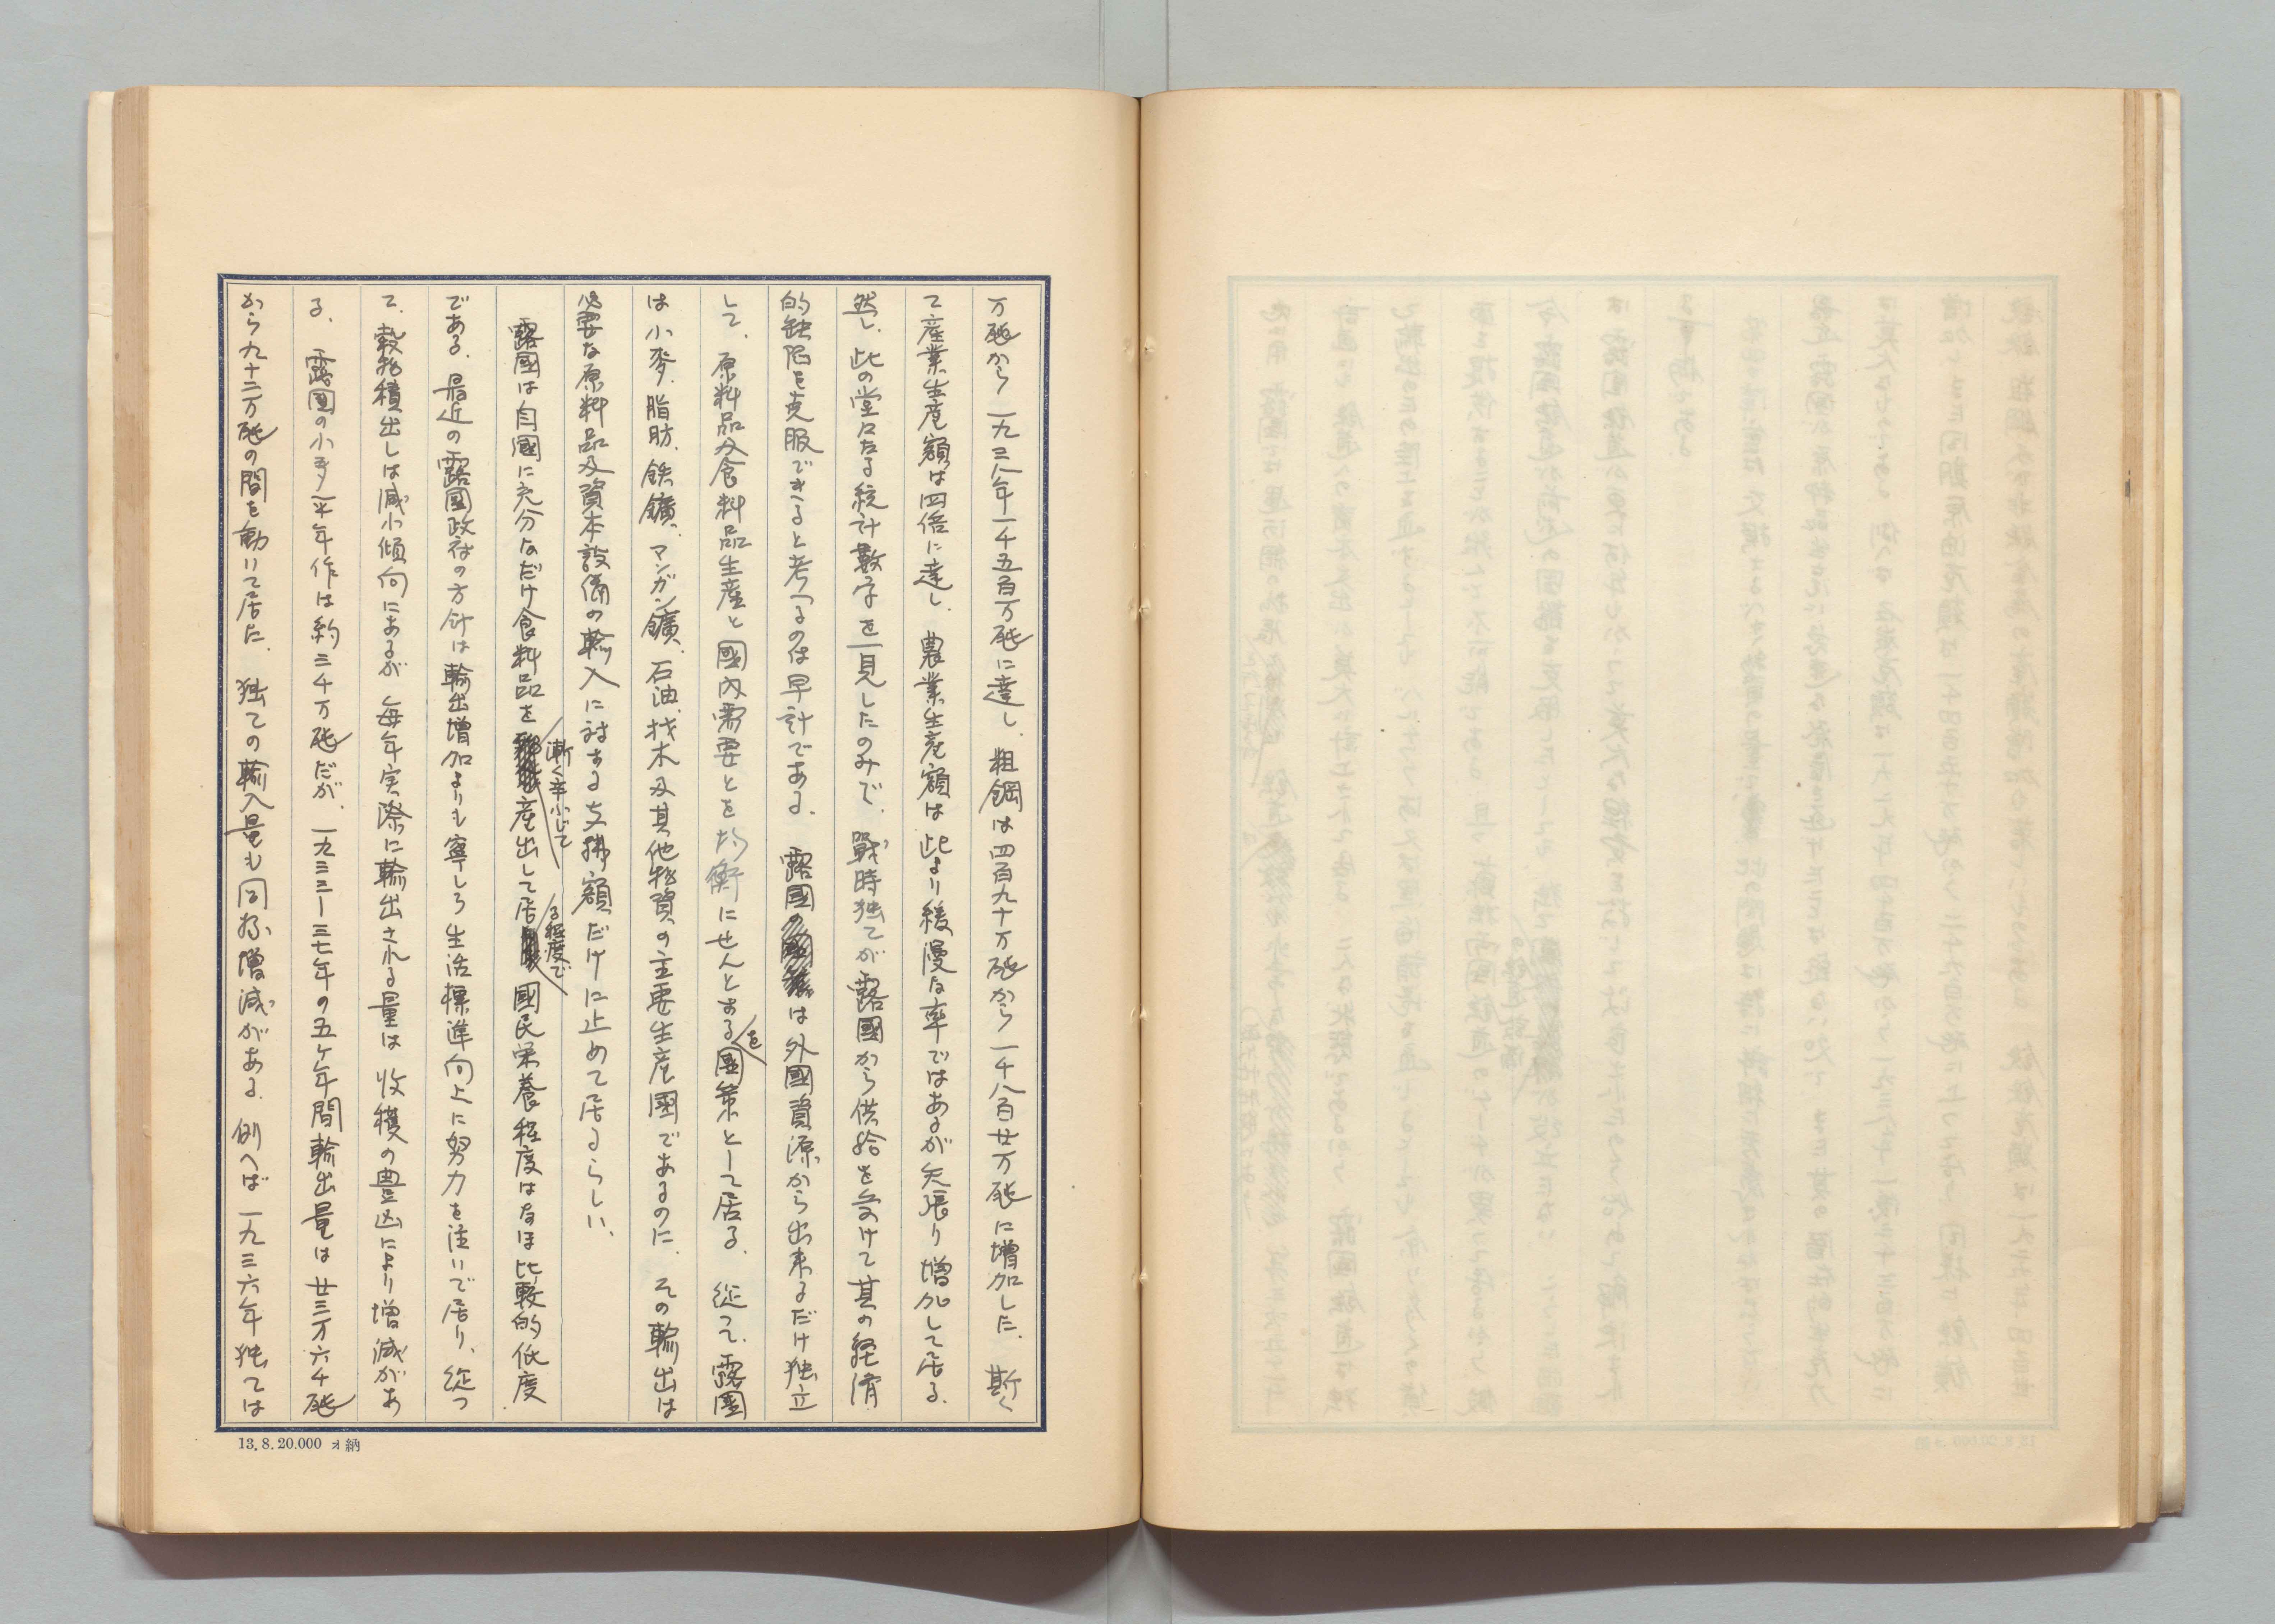 万瓲から一九三八年一千五百万瓲に達し、粗鋼は四百九十万瓲から一千八百廿万瓲に増加した、斯く
て産業生産額は四倍に達し、農業生産額は此より緩慢な率ではあるが矢張り増加して居る、
然し、此の堂々たる統計数字を一見したのみで、戰時独乙が露國から供給を受けて其の経済
的缺陥を克服できると考へるのは早計である、露國は外國資源から出来るだけ独立
して、原料品及食料品生産と國内需要とを均衡にせんとするを國策として居る、従つて、露國
は小麥、脂肪、鉄鑛、マンガン鑛、石油、材木及其他物資の主要生産國であるのに、その輸出は
必要な原料品及資本設備の輸入に対する支拂額だけに止めて居るらしい、
露國は自國に充分なだけ食料品を漸く辛じて産出して居る程度で國民栄養程度はなほ比較的低度
である、最近の露國政府の方針は輸出増加よりも寧しろ生活標準向上に努力を注いで居り、従つ
て、穀物積出しは減小傾向にあるが毎年実際に輸出される量は收穫の豊凶により増減があ
る、露國の小麥平年作は約三千万瓲だが、一九三三ー三七年の五ヶ年間輸出量は廿三万六千瓲
から九十二万瓲の間を動いて居た、独乙の輸入量も同様増減がある、例へば一九三六年独乙は
13.8.20.000 オ納